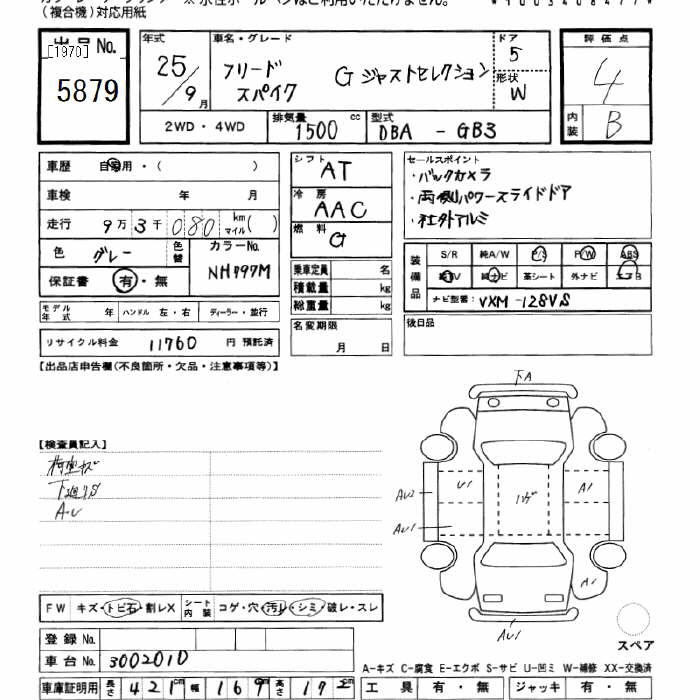 (複合機)対応用紙
出品No.
[1970]
5879
年式 25/9月
車名・グレード フリードスパイク G ジャストセレクション
ドア 5
形状 W
評価点 4
内装 B
2WD・4WD
排気量 1500 cc
型式 DBA - GB3
車歴 自家用・( )
車検 年 月
走行 9万3千080 km マイル( )
色 グレー 色替
カラーNo. NH797M
保証書 有・無
モデル年式 年 ハンドル 左・右 ディーラー・並行
リサイクル料金 11760 円 預託済
シフト AT
冷房 AAC
燃料 G
乗車定員 名
積載量 kg
総重量 kg
名変期限 月 日
セールスポイント
・バックカメラ
・両側パワースライドドア
・社外アルミ
装備品
S/R 純A/W P/S P/W ABS
純ナビ 革シート 外ナビ エアB
ナビ型番: VXM-128VS
後日品
【出品店申告欄(不良箇所・欠品・注意事項等)】
【検査員記入】
下廻りS
A・U
下A
U1
ハゲ
A1
AU2
AU1
A1
AU1
スペア
FW キズ・トビ石・割レX シート内装 コゲ・穴・汚レ・シミ・破レ・スレ
登録No.
車台No. 3002010
車庫証明用 長さ 421cm 幅 169m 高さ 172cm
A-キズ C-腐食 E-エクボ S-サビ U-凹ミ W-補修 XX-交換済
工具 有・無 ジャッキ 有・無